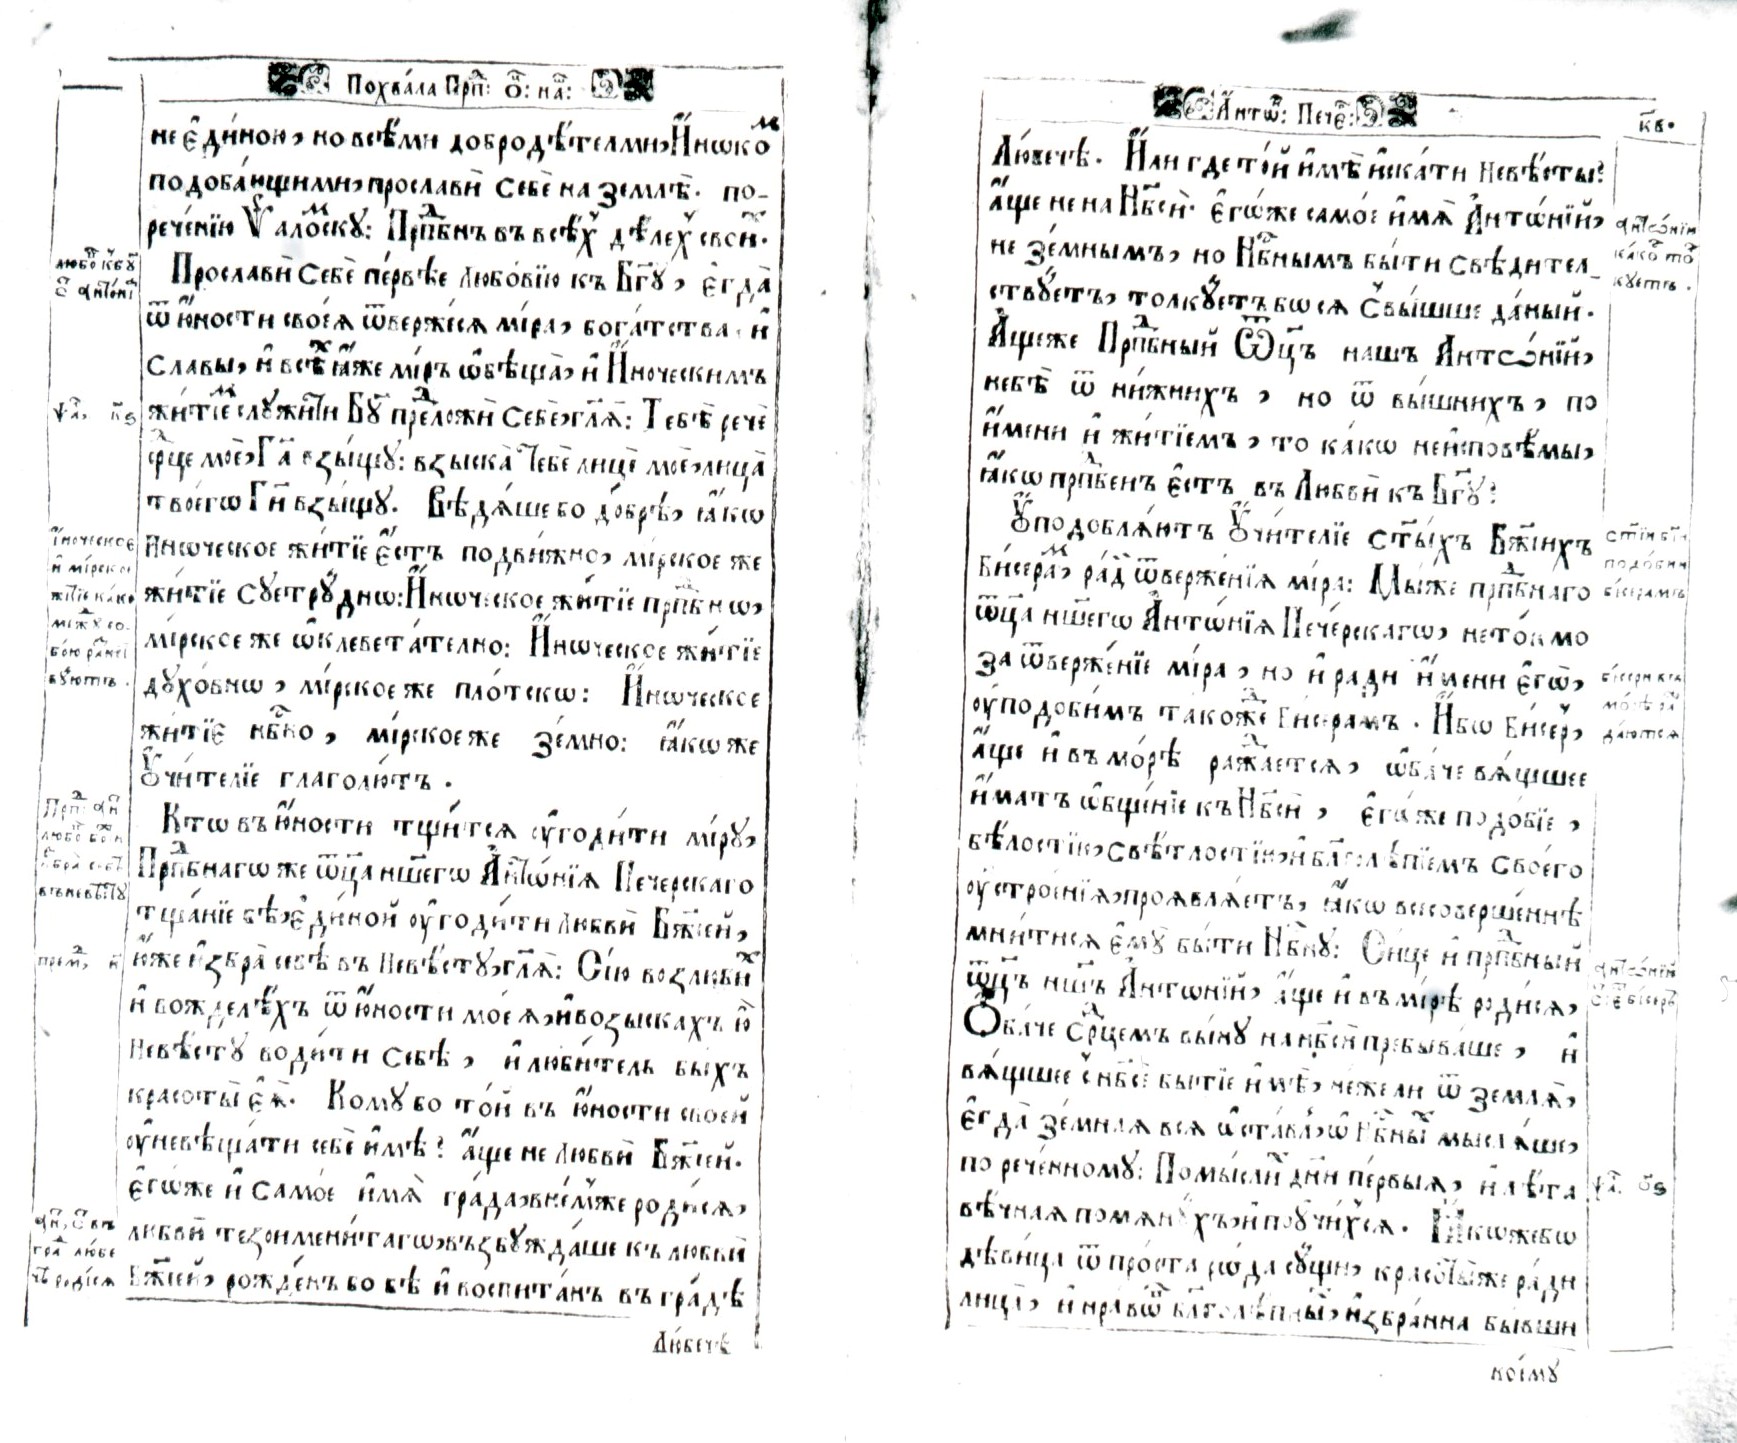 Похва́ла Прпⷣ: Ѻ҃: на́ⷲ:
не є҆ди́ною, но всѣ́ми добродѣ́телми, И҆́нѡкоⷨ
подоба́ющими, прослави̑ себѐ на землѣ̀. по-
рече́нїю Ѱало́ⷨскꙋ: Прпⷣбнъ въ всѣ́хъ дѣ́леⷯ свои́ⷯ.
Прослави̑ Себѐ пе́рвѣе любо́вїю къ Бг҃ꙋ, є҆гда̀
ѿ ю҆́ности своеѧ̀ ѿве́ржесѧ мі́ра, бога́тства и҆
Сла́вы, и҆ всѣ́ⷯ ꙗ҆́же мі́ръ ѡ҆бѣща̀, и҆ И҆́ноческимъ
жи́тїеⷨ слꙋжи́ти Бг҃ꙋ преⷣложѝ Себѐ, гл҃ѧ: Тебѣ̀ речѐ
срⷣце моѐ, Гдⷭ҇а взы́щꙋ: взыска̀ Тебѐ лицѐ моѐ, лица̀
твоегѡ̀ Гдⷭ҇и взы́щꙋ. Вѣ́дѧше бо до́брѣ, ꙗ҆́кѡ
И҆́нѡческое жи́тїе є҆́стъ подви́жно, мі́рское же
жи́тїе сꙋетрꙋ́днѡ: И҆́нѡческое жи́тїе прпⷣбнѡ,
мі́рское же ѡ҆клевета́телно: И҆́нѡческое жи́тїе
дꙋхо́внѡ, мі́рское же пло́тскѡ: И҆́нѡческое
жи́тїе нбⷭ҇но, мі́рское же зе́мно: ꙗ҆́кѡ же
Оу҆чи́телїе глаго́лютъ.
Ктѡ въ ю҆́ности тщи́тсѧ оу҆годи́ти мі́рꙋ,
Прпⷣбнагѡ же ѿц҃а нш҃егѡ А҆нтѡ́нїѧ Пече́рскаго
тща́нїе бѣ̀, є҆ди́ной оу҆годи́ти любвѝ Бж҃їей,
ю҆́же и҆збра̀ себѣ̀ въ Невѣ́стꙋ, гл҃ѧ: Сїю̀ возлюби́ⷯ
и҆ вожделѣ́хъ ѿ ю҆́ности моеѧ̀, и҆ возыска́хъ ю҆̀
Невѣ́стꙋ води́ти Себѣ̀, и҆ люби́тель бы́хъ
красоты̀ є҆ѧ̀. Комꙋ́ бо то́й въ ю҆́ности своей
оу҆невѣща́ти себѐ и҆мѣ̀? а҆́ще не любвѝ Бж҃їей.
Є҆гѡ́же и҆ само́е и҆́мѧ гра́да, вне́мже роди́сѧ,
любвѝ тезоимени́тагѡ, възбꙋжда́ше къ любвѝ
Бж҃їей, рожде́нъ бо бѣ̀ и҆ воспита́нъ въ гра́дѣ
Лю́бечѣ
любо́ⷡ к Бг҃ꙋ
С҃ Анто́нї
ѱаⷧ, к҃ѕ
И҆́ноческое
и҆ мі́рское
жи́тїе ка́ко
межⷣꙋ со-
бо́ю ра́нст
вꙋ́ютъ.
Прпⷣ: Ан҃
любо́ⷡ Бо́жїю
и҆збра̀ себѣ̀
въ невѣ́стꙋ
премⷣ, и҃
Ан҃, С҃ въ
гра́ⷣ Лю́бе
чѣ роди́сѧ
А҆нтѡ́ⷩ: Пече́ⷬ:
к҃в.
Лю́бечѣ. И҆лѝ где то́й и҆мѣ̀ и҆ска́ти Невѣ́сты?
а҆́ще не на Нбⷭ҇и. Є҆гѡ́же само́е и҆́мѧ А҆нтѡ́нїй,
не зе́мнымъ, но Нбⷭ҇нымъ бы́ти свѣдител-
ствꙋетъ, толкꙋ́етъ бѡ сѧ Свы́шше да́ный.
А҆́щеже Прпⷣбный Ѿц҃ъ нашъ Антѡ́нїй,
небѣ̀ ѿ ни́жнихъ, но ѿ вы́шнихъ, по
и҆́мени и҆ жи́тїемъ, то ка́кѡ неисповѣ́мы,
ꙗ҆́кѡ прпⷣбенъ є҆́стъ въ Любвѝ къ Бг҃ꙋ?
Оу҆подоблѧ́ютъ Оу҆чи́телїе ст҃ы́хъ Бж҃їихъ
Би́сераⷨ, ра́ди ѿверже́нїѧ мі́ра: Мы́же прпⷣбнаго
ѿц҃а нш҃егѡ А҆нтѡ́нїѧ Пече́рскагѡ, нето́кмо
за ѿверже́нїе мі́ра, но и҆ ра́ди и҆́мени є҆гѡ̀,
оу҆подо́бимъ та́коже Би́серамъ. И҆́бѡ Би́серъ,
а҆́ще и҆ въ мо́рѣ ражⷣаетсѧ, ѡ҆ба́че вѧ́щшее
и҆́матъ ѡ҆бще́нїе къ Нбⷭ҇и, Є҆гѡ́же подо́бїе,
бѣ́лостїю, свѣ́тлостїю, и҆ бл҃голѣ́пїемъ своего
оу҆строе́нїѧ, проѧвлѧ́етъ, ꙗ҆́кѡ всесоверше́ннѣ
мни́тисѧ є҆мꙋ̀ бы́ти Нбⷭ҇нꙋ: Си́це и҆ прпⷣбный
ѿц҃ъ нш҃ъ А҆нтѡнїй, а҆́ще и҆ въ мі́рѣ роди́сѧ,
Ѻ҆ба́че Срⷣцемъ вы́нꙋ на нбⷭ҇и пребыва́ше, и҆
вѧ́щшее с нбⷭ҇е бытїѐ и҆мѣ̀, не́жели ѿ землѧ̀,
є҆гда̀ зе́мнаѧ всѧ ѡ҆ста́влѧ, ѡ҆ Нбⷭ҇ныⷯ мы́слѧше,
по рече́нномꙋ: Помы́слиⷯ дн҃и пе́рвыѧ, и҆ лѣ́та
вѣ́чнаѧ помѧнꙋ́хъ, и҆ поꙋчи́хсѧ. Ꙗ҆́кѡжебѡ
дѣви́ца ѿ про́ста ро́да сꙋ́щи, красоты́же ра́ди
лица̀, и҆ нра́вѡⷡ бл҃голѣ́пныⷯ, и҆збра́нна бы́вши
кое́мꙋ
Антѡ́нїй
ка́ко то́ⷧ
кꙋетъ.
Ст҃їи Бж҃їи
подо́бни
би́серамъ
би́сери въ
мо́рѣ ра
да́ютсѧ
Антѡ́нїй
С҃ є҆́ⷭ би́серъ
ѱаⷧ. о҃ѕ